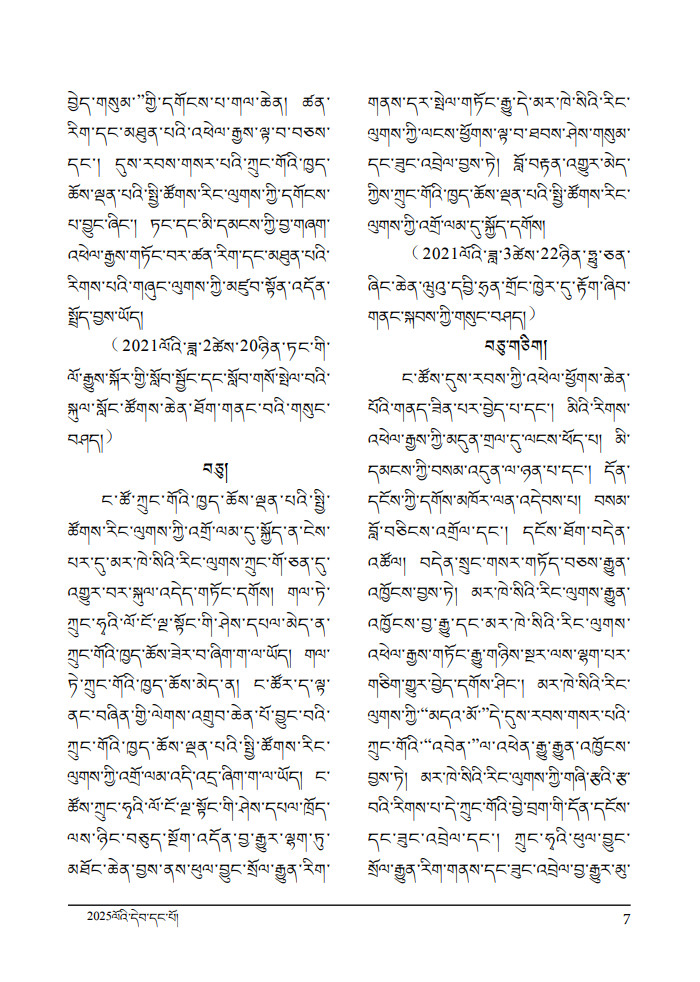 བྱེད་གསུམ་”གྱི་དགོངས་པ་གལ་ཆེན། ཚན་
རིག་དང་མཐུན་པའི་འཕེལ་རྒྱས་ལྟ་བ་བཅས་
དང་། དུས་རབས་གསར་པའི་ཀྲུང་གོའི་ཁྱད་
ཆོས་ལྡན་པའི་སྤྱི་ཚོགས་རིང་ལུགས་ཀྱི་དགོངས་
པ་བྱུང་ཞིང་། ཏང་དང་མི་དམངས་ཀྱི་བྱ་གཞག་
འཕེལ་རྒྱས་གཏོང་བར་ཚན་རིག་དང་མཐུན་པའི་
རིགས་པའི་གཞུང་ལུགས་ཀྱི་མཛུབ་སྟོན་འདོན་
སྤྲོད་བྱས་ཡོད།
（2021ལོའི་ཟླ་2ཚེས་20ཉིན་ཏང་གི་
ལོ་རྒྱུས་སྐོར་གྱི་སློབ་སྦྱོང་དང་སློབ་གསོ་སྤེལ་བའི་
སྐུལ་སློང་ཚོགས་ཆེན་ཐོག་གནང་བའི་གསུང་
བཤད།）
བཅུ།
ང་ཚོ་ཀྲུང་གོའི་ཁྱད་ཆོས་ལྡན་པའི་སྤྱི་
ཚོགས་རིང་ལུགས་ཀྱི་འགྲོ་ལམ་དུ་སྐྱོད་ན་ངེས་
པར་དུ་མར་ཁེ་སིའི་རིང་ལུགས་ཀྲུང་གོ་ཅན་དུ་
འགྱུར་བར་སྐུལ་འདེད་གཏོང་དགོས། གལ་ཏེ་
ཀྲུང་ཧྭའི་ལོ་ངོ་ལྔ་སྟོང་གི་ཤེས་དཔལ་མེད་ན་
ཀྲུང་གོའི་ཁྱད་ཆོས་ཟེར་བ་ཞིག་ག་ལ་ཡོད། གལ་
ཏེ་ཀྲུང་གོའི་ཁྱད་ཆོས་མེད་ན། ང་ཚོར་ད་ལྟ་
ནང་བཞིན་གྱི་ལེགས་འགྲུབ་ཆེན་པོ་བྱུང་བའི་
ཀྲུང་གོའི་ཁྱད་ཆོས་ལྡན་པའི་སྤྱི་ཚོགས་རིང་
ལུགས་ཀྱི་འགྲོ་ལམ་འདི་འདྲ་ཞིག་ག་ལ་ཡོད། ང་
ཚོས་ཀྲུང་ཧྭའི་ལོ་ངོ་ལྔ་སྟོང་གི་ཤེས་དཔལ་ཁྲོད་
ལས་ཉིང་བཅུད་སྔོག་འདོན་བྱ་རྒྱུར་ལྷག་ཏུ་
མཐོང་ཆེན་བྱས་ནས་ཕུལ་བྱུང་སྲོལ་རྒྱུན་རིག་
གནས་དར་སྤེལ་གཏོང་རྒྱུ་དེ་མར་ཁེ་སིའི་རིང་
ལུགས་ཀྱི་ལངས་ཕྱོགས་ལྟ་བ་ཐབས་ཤེས་གསུམ་
དང་ཟུང་འབྲེལ་བྱས་ཏེ། བློ་བརྟན་འགྱུར་མེད་
ཀྱིས་ཀྲུང་གོའི་ཁྱད་ཆོས་ལྡན་པའི་སྤྱི་ཚོགས་རིང་
ལུགས་ཀྱི་འགྲོ་ལམ་དུ་སྐྱོད་དགོས།
（2021ལོའི་ཟླ་3ཚེས་22ཉིན་ཧྥུ་ཅན་
ཞིང་ཆེན་ཝུའུ་དབྱི་ཧྲན་གྲོང་ཁྱེར་དུ་རྟོག་ཞིབ་
གནང་སྐབས་ཀྱི་གསུང་བཤད།）
བཅུ་གཅིག།
ང་ཚོས་དུས་རབས་ཀྱི་འཕེལ་ཕྱོགས་ཆེན་
པོའི་གནད་ཟིན་པར་བྱེད་པ་དང་། མིའི་རིགས་
འཕེལ་རྒྱས་ཀྱི་མདུན་གྲལ་དུ་ལངས་ཕོད་པ། མི་
དམངས་ཀྱི་བསམ་འདུན་ལ་ཉན་པ་དང་། དོན་
དངོས་ཀྱི་དགོས་མཁོར་ལན་འདེབས་པ། བསམ་
བློ་བཅིངས་འགྲོལ་དང་། དངོས་ཐོག་བདེན་
འཚོལ། བདེན་སྲུང་གསར་གཏོད་བཅས་རྒྱུན་
འཁྱོངས་བྱས་ཏེ། མར་ཁེ་སིའི་རིང་ལུགས་རྒྱུན་
འཁྱོངས་བྱ་རྒྱུ་དང་མར་ཁེ་སིའི་རིང་ལུགས་
འཕེལ་རྒྱས་གཏོང་རྒྱུ་གཉིས་སྔར་ལས་ལྷག་པར་
གཅིག་གྱུར་བྱེད་དགོས་ཤིང་། མར་ཁེ་སིའི་རིང་
ལུགས་ཀྱི་“མདའ་མོ་”དེ་དུས་རབས་གསར་པའི་
ཀྲུང་གོའི་“འབེན་”ལ་འཕེན་རྒྱུ་རྒྱུན་འཁྱོངས་
བྱས་ཏེ། མར་ཁེ་སིའི་རིང་ལུགས་ཀྱི་གཞི་རྩའི་རྩ་
བའི་རིགས་པ་དེ་ཀྲུང་གོའི་བྱེ་བྲག་གི་དོན་དངོས་
དང་ཟུང་འབྲེལ་དང་། ཀྲུང་ཧྭའི་ཕུལ་བྱུང་
སྲོལ་རྒྱུན་རིག་གནས་དང་ཟུང་འབྲེལ་བྱ་རྒྱུར་མུ་
2025ལོའི་དེབ་དང་པོ།
7